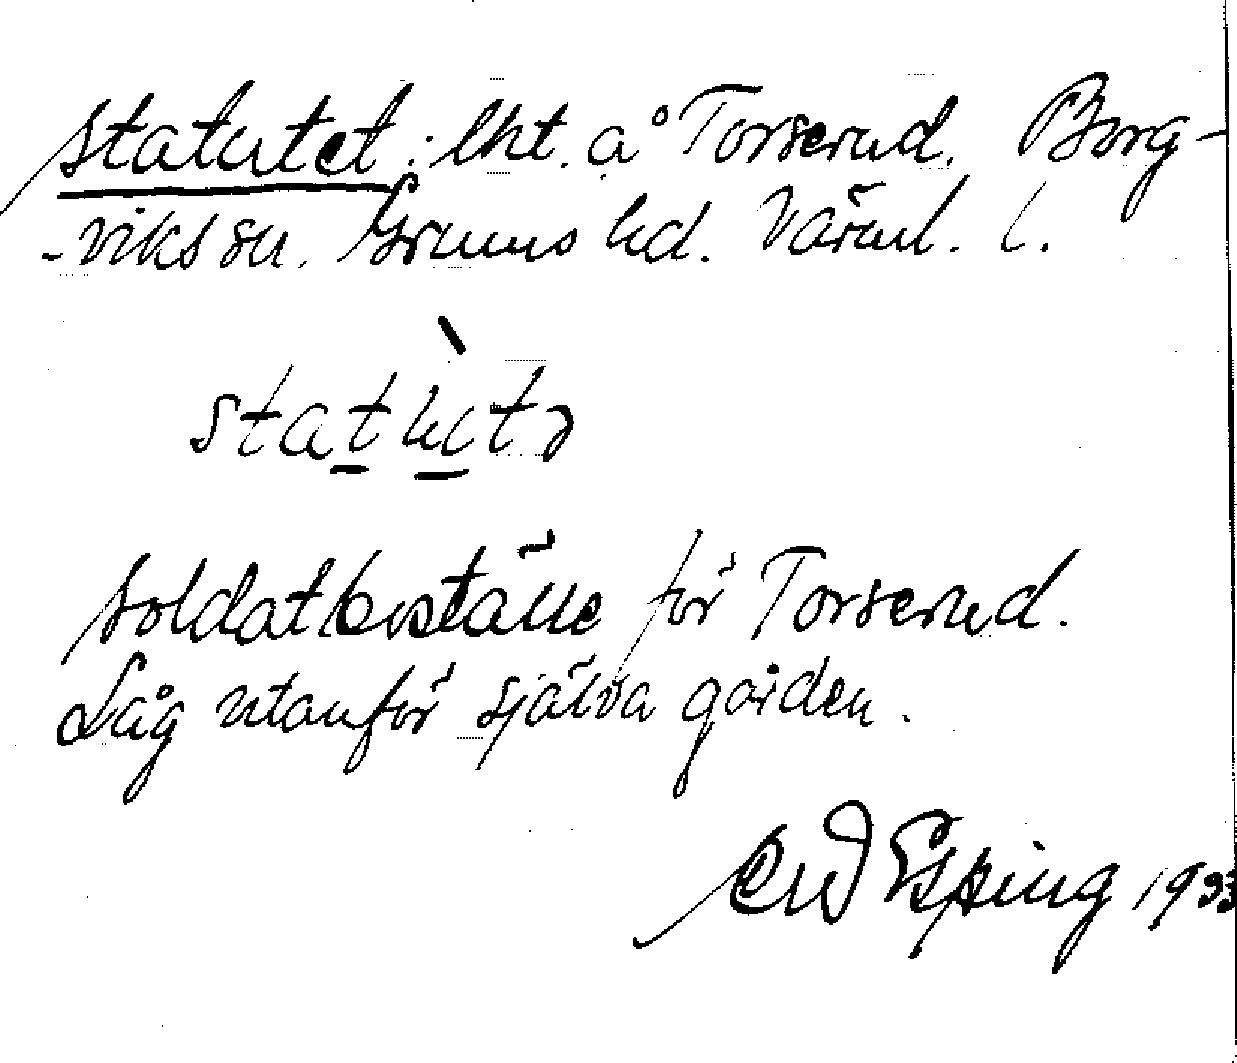 statutet: lht. å Torserud. Borg-
-vikssn. Grums hd. Värml. l.
soldatboställe för Torserud.
Låg utanför själva gården.
Esping 1933